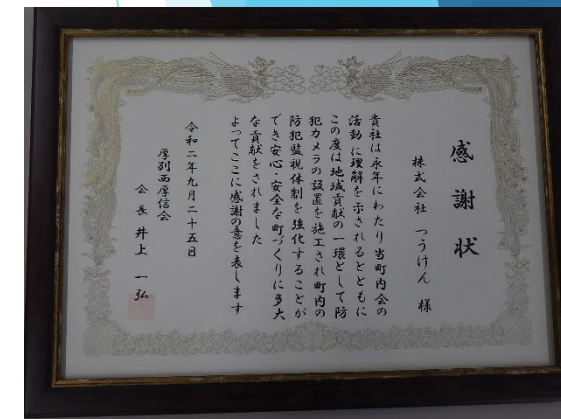 感謝状
株式会社 つうけん 様
貴社は永年にわたり当町内会の
活動に理解を示されるとともに
この度は地域貢献の一環として防
犯カメラの設置を施工され町内の
防犯監視体制を強化することが
でき安心・安全な町づくりに多大
な貢献をされました
よってここに感謝の意を表します
令和二年九月二十五日
厚別西厚信会
会長 井上 一弘